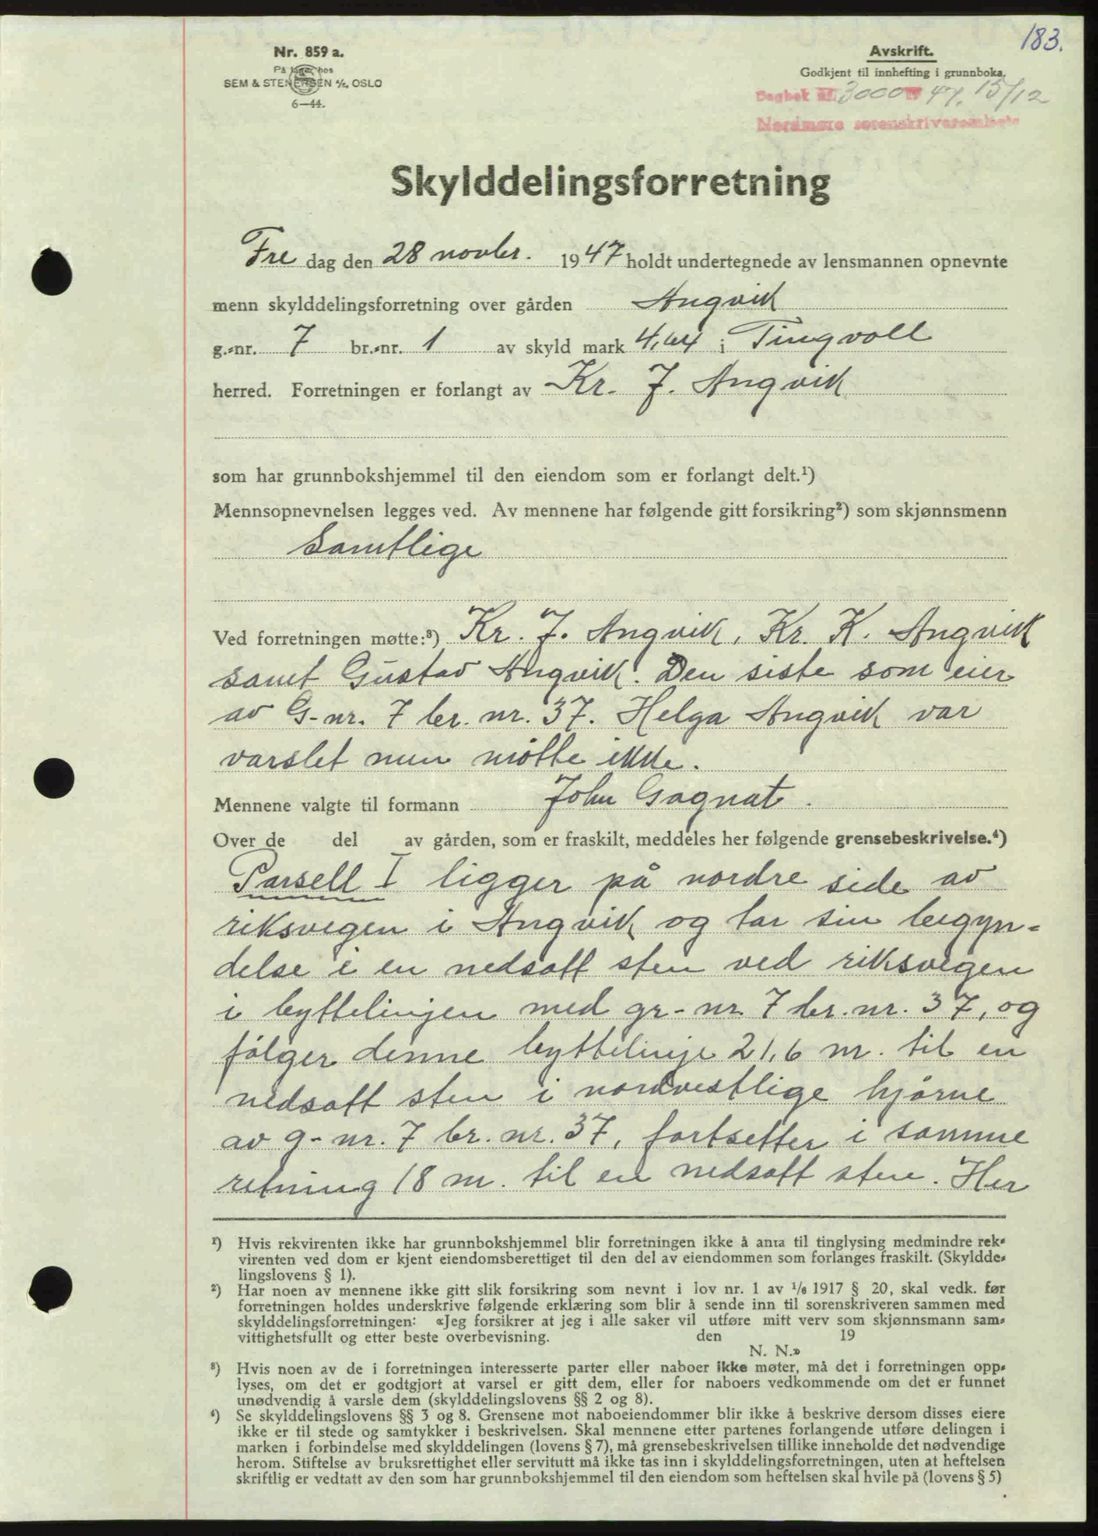 183.
Nr. 859 a.
På lager hos
SEM & STENERSEN A/S, OSLO
6—44.
Avskrift.
Godkjent til innhefting i grunnboka.
Dagbok nr. 3000 19 47, 15/12
Nordmøre sorenskriverembete
Skylddelingsforretning
Fre dag den 28 novbr. 1947 holdt undertegnede av lensmannen opnevnte
menn skylddelingsforretning over gården Angvik
g.-nr. 7 br.-nr. 1 av skyld mark 4,64 i Tingvoll
herred. Forretningen er forlangt av Kr. J. Angvik
som har grunnbokshjemmel til den eiendom som er forlangt delt.¹)
Mennsopnevnelsen legges ved. Av mennene har følgende gitt forsikring²) som skjønnsmenn
Samtlige
Ved forretningen møtte:³) Kr. J. Angvik, Kr. K. Angvik
samt Gustav Angvik. Den siste som eier
av G-nr. 7 br. nr. 37. Helga Angvik var
varslet men møtte ikke.
Mennene valgte til formann John Gagnat.
Over de del av gården, som er fraskilt, meddeles her følgende grensebeskrivelse.⁴)
Parsell I ligger på nordre side av
riksvegen i Angvik og tar sin begyn-
delse i en nedsatt sten ved riksvegen
i byttelinjen med gr-nr. 7 br. nr. 37, og
følger denne byttelinje 21,6 m. til en
nedsatt sten i nordvestlige hjørne
av g-nr. 7 br. nr. 37, fortsetter i samme
retning 18 m. til en nedsatt sten. Her
¹) Hvis rekvirenten ikke har grunnbokshjemmel blir forretningen ikke å anta til tinglysing medmindre rek-
virenten ved dom er kjent eiendomsberettiget til den del av eiendommen som forlanges fraskilt. (Skyldde-
lingslovens § 1).
²) Har noen av mennene ikke gitt slik forsikring som nevnt i lov nr. 1 av ¹/₆ 1917 § 20, skal vedk. før
forretningen holdes underskrive følgende erklæring som blir å sende inn til sorenskriveren sammen med
skylddelingsforretningen: «Jeg forsikrer at jeg i alle saker vil utføre mitt verv som skjønnsmann sam-
vittighetsfullt og etter beste overbevisning. den 19
N. N.»
³) Hvis noen av de i forretningen interesserte parter eller naboer ikke møter, må det i forretningen opp-
lyses, om det er godtgjort at varsel er gitt dem, eller for naboers vedkommende om det er funnet
unødvendig å varsle dem (skylddelingslovens §§ 2 og 8).
⁴) Se skylddelingslovens §§ 3 og 8. Grensene mot naboeiendommer blir ikke å beskrive dersom disses eiere
ikke er til stede og samtykker i beskrivelsen. Skal mennene etter partenes forlangende utføre delingen i
marken i forbindelse med skylddelingen (lovens § 7), må grensebeskrivelsen tillike inneholde det nødvendige
herom. Stiftelse av bruksrettighet eller servitutt må ikke tas inn i skylddelingsforretningen, uten at heftelsen
skriftlig er vedtatt av den som har grunnbokshjemmel til den eiendom som heftelsen skal hvile på (lovens § 5)